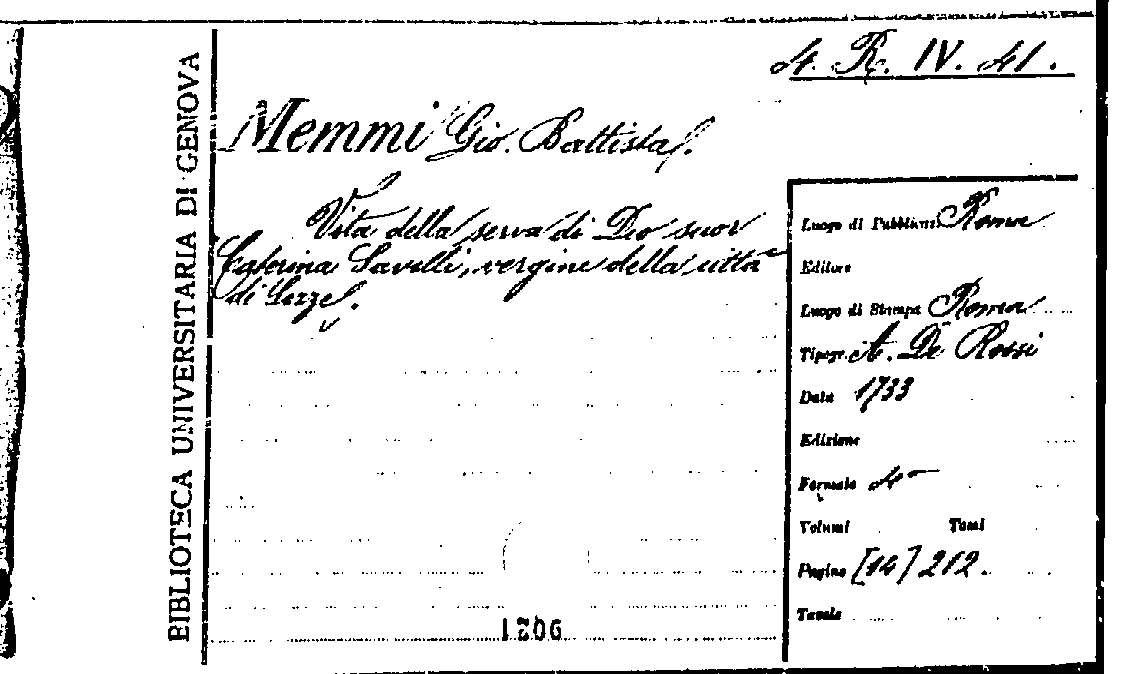 4. R. IV. 41.
BIBLIOTECA UNIVERSITARIA DI GENOVA
Memmi Gio. Battista.
Vita della serva di Dio suor
Caterina Savelli, vergine della città
di Sezze.
Luogo di Pubblicaz. Roma
Editore
Luogo di Stampa Roma
Tipogr. A. De Rossi
Data 1733
Edizione
Formato 4°
Volumi Tomi
Pagine [14] 212.
Tavole
1206